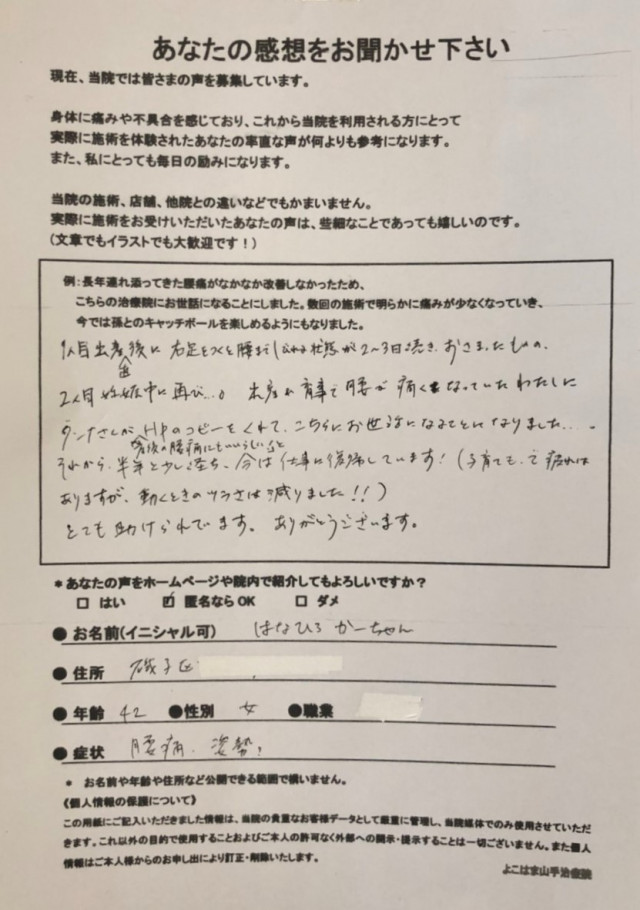 あなたの感想をお聞かせ下さい
現在、当院では皆さまの声を募集しています。
身体に痛みや不具合を感じており、これから当院を利用される方にとって
実際に施術を体験されたあなたの率直な声が何よりも参考になります。
また、私にとっても毎日の励みになります。
当院の施術、店舗、他院との違いなどでもかまいません。
実際に施術をお受けいただいたあなたの声は、些細なことであっても嬉しいのです。
(文章でもイラストでも大歓迎です!)
例:長年連れ添ってきた腰痛がなかなか改善しなかったため、
こちらの治療院にお世話になることにしました。数回の施術で明らかに痛みが少なくなっていき、
今では孫とのキャッチボールを楽しめるようにもなりました。
1人目出産後に右足をつくと腰までしびれる状態が2〜3日続き、おさまったものの、
2人目妊娠中に再び...。 出産、育児で腰が痛くなっていたわたしに
ダンナさんがHPのコピーをくれて、こちらにお世話になることになりました...。
産後の腰痛にもいいらしいよと
それから、半年と少し経ち、今は仕事に復帰しています!(子育ても、で疲れは
ありますが、動くときのツラさは減りました!!)
とても助けられています。ありがとうございます。
*あなたの声をホームページや院内で紹介してもよろしいですか?
□ はい ☑ 匿名ならOK □ ダメ
● お名前(イニシャル可) はなひろかーちゃん
● 住所 磯子区
● 年齢 42 ●性別 女 ●職業
● 症状 腰痛、姿勢
* お名前や年齢や住所など公開できる範囲で構いません。
《個人情報の保護について》
この用紙にご記入いただきました情報は、当院の貴重なお客様データとして厳重に管理し、当院媒体でのみ使用させていただ
きます。これ以外の目的で使用することおよびご本人の許可なく外部への開示・提示することは一切ございません。また個人
情報はご本人様からのお申し出により訂正・削除いたします。
よこはま山手治療院